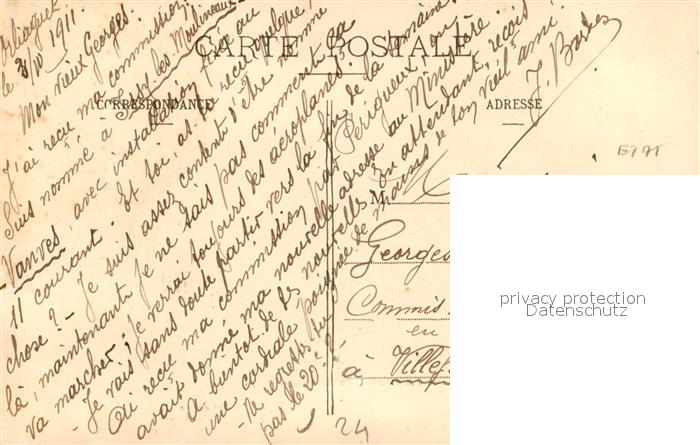 le 3/IV 1911.
Mon vieux Georges.
J'ai reçu ma commission,
Suis nommé à Issy les Moulineaux
- Vanves, avec installation fixe au
11 courant. Et toi, as-tu reçu quelque
chose ? - Je suis assez content d'être nommé
là, maintenant je ne sais pas comment ça
va marcher, je verrai toujours les aéroplanes.
- Je vais sans doute partir vers la fin de la semaine
Ai reçu ma commission par Périgueux, on
avait donné ma nouvelle adresse au Ministère.
A bientôt de tes nouvelles. En attendant, reçois
une cordiale poignée de mains de ton vieil ami.
J. Barbe
- Ne regrettes-tu
pas le 20e ?
CARTE POSTALE
CORRESPONDANCE
ADRESSE
M
Georges
Commis
en
à Villef
24
privacy protection
Datenschutz